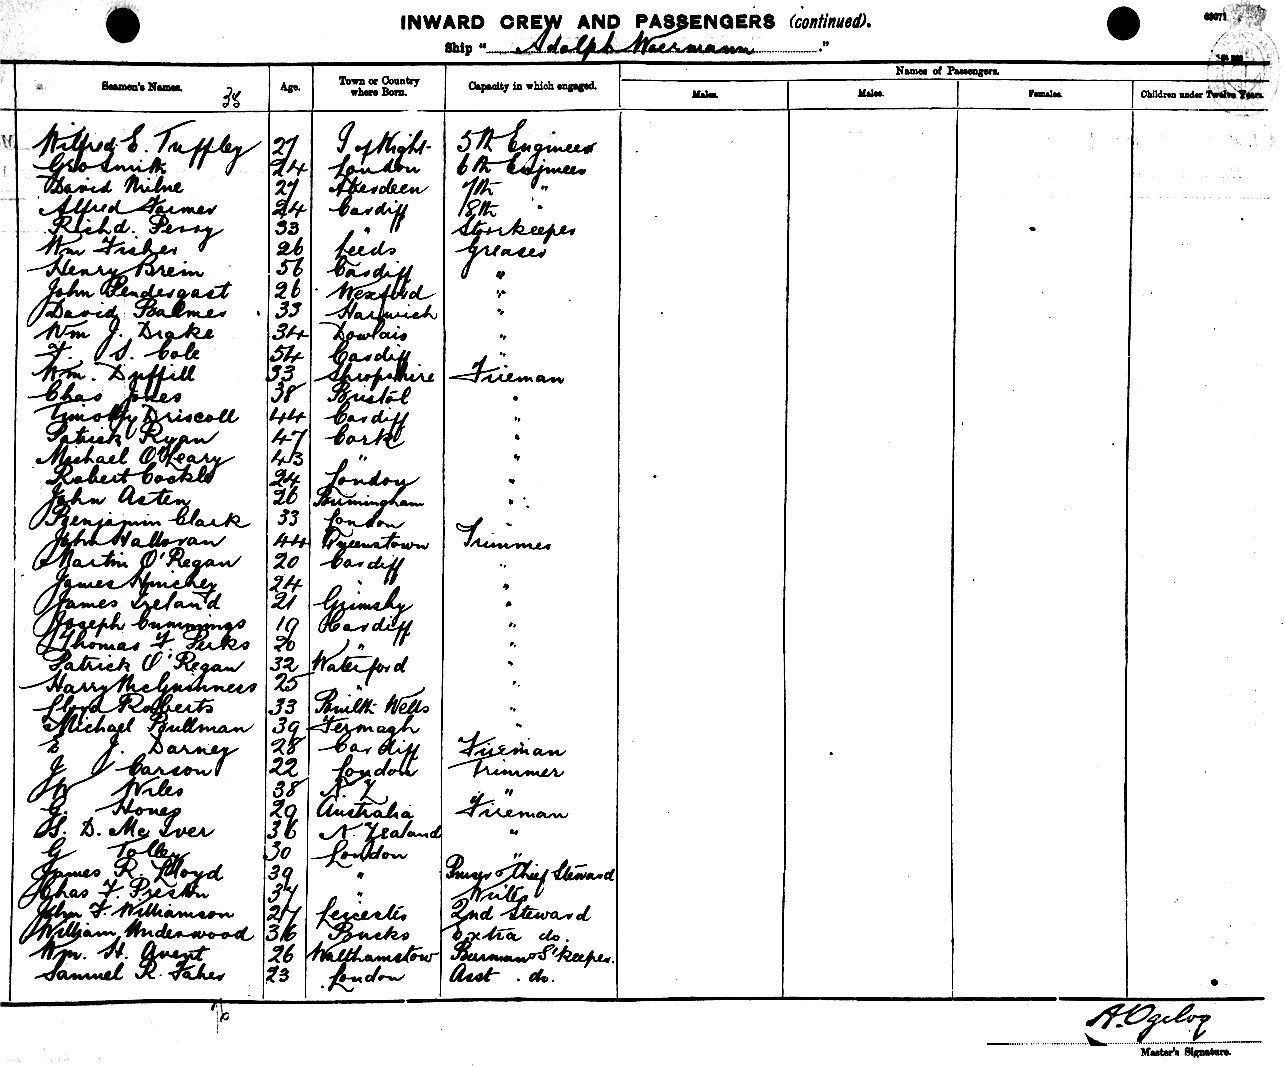 69071
INWARD CREW AND PASSENGERS (continued).
Ship "Adolph Woermann."
Names of Passengers.
Seamen's Names. Age. Town or Country where Born. Capacity in which engaged. Males. Males. Females. Children under Twelve Years.
38
Wilfred E. Tuffley 27 I of Wight 5th Engineer
Geo Smith 24 London 6th Engineer
David Milne 27 Aberdeen 7th "
Alfred Farmer 24 Cardiff 8th "
Richd. Perry 33 " Storekeeper
Wm Fisher 26 Leeds Greaser
Henry Brein 56 Cardiff "
John Pendergast 26 Wexford "
David Balmer 33 Harwich "
Wm J. Drake 34 Dowlais "
F. S. Cole 54 Cardiff "
Wm. Duffill 33 Shropshire Fireman
Chas Jones 38 Bristol "
Timothy Driscoll 44 Cardiff "
Patrick Ryan 47 Cork "
Michael O'Leary 43 " "
Robert Cockle 24 London "
John Asten 26 Birmingham "
Benjamin Clark 33 London "
John Halloran 44 Queenstown Trimmer
Martin O'Regan 20 Cardiff "
James Hinchey 24 " "
James Ireland 21 Grimsby "
Joseph Cummings 19 Cardiff "
Thomas F. Perks 20 " "
Patrick O'Regan 32 Waterford "
Harry McGuinness 25 " "
Lloyd Roberts 33 Builth Wells "
Michael Bullman 39 Fermagh "
E J. Darney 28 Cardiff Fireman
J Carson 22 London Trimmer
W Wiles 38 N. Z "
G. Hones 29 Australia Fireman
H. D. McIver 36 N. Zealand "
G Tolley 30 London "
James R. Lloyd 39 " Purser & Chief Steward
Chas F. Preston 37 " Writer
John F. Williamson 27 Leicester 2nd Steward
William Underwood 36 Bucks Extra do.
Wm. H. Avent 26 Walthamstow Barman & S'keeper.
Samuel R. Faher 23 London Asst. do.
76
A. Ogilvy
Master's Signature.